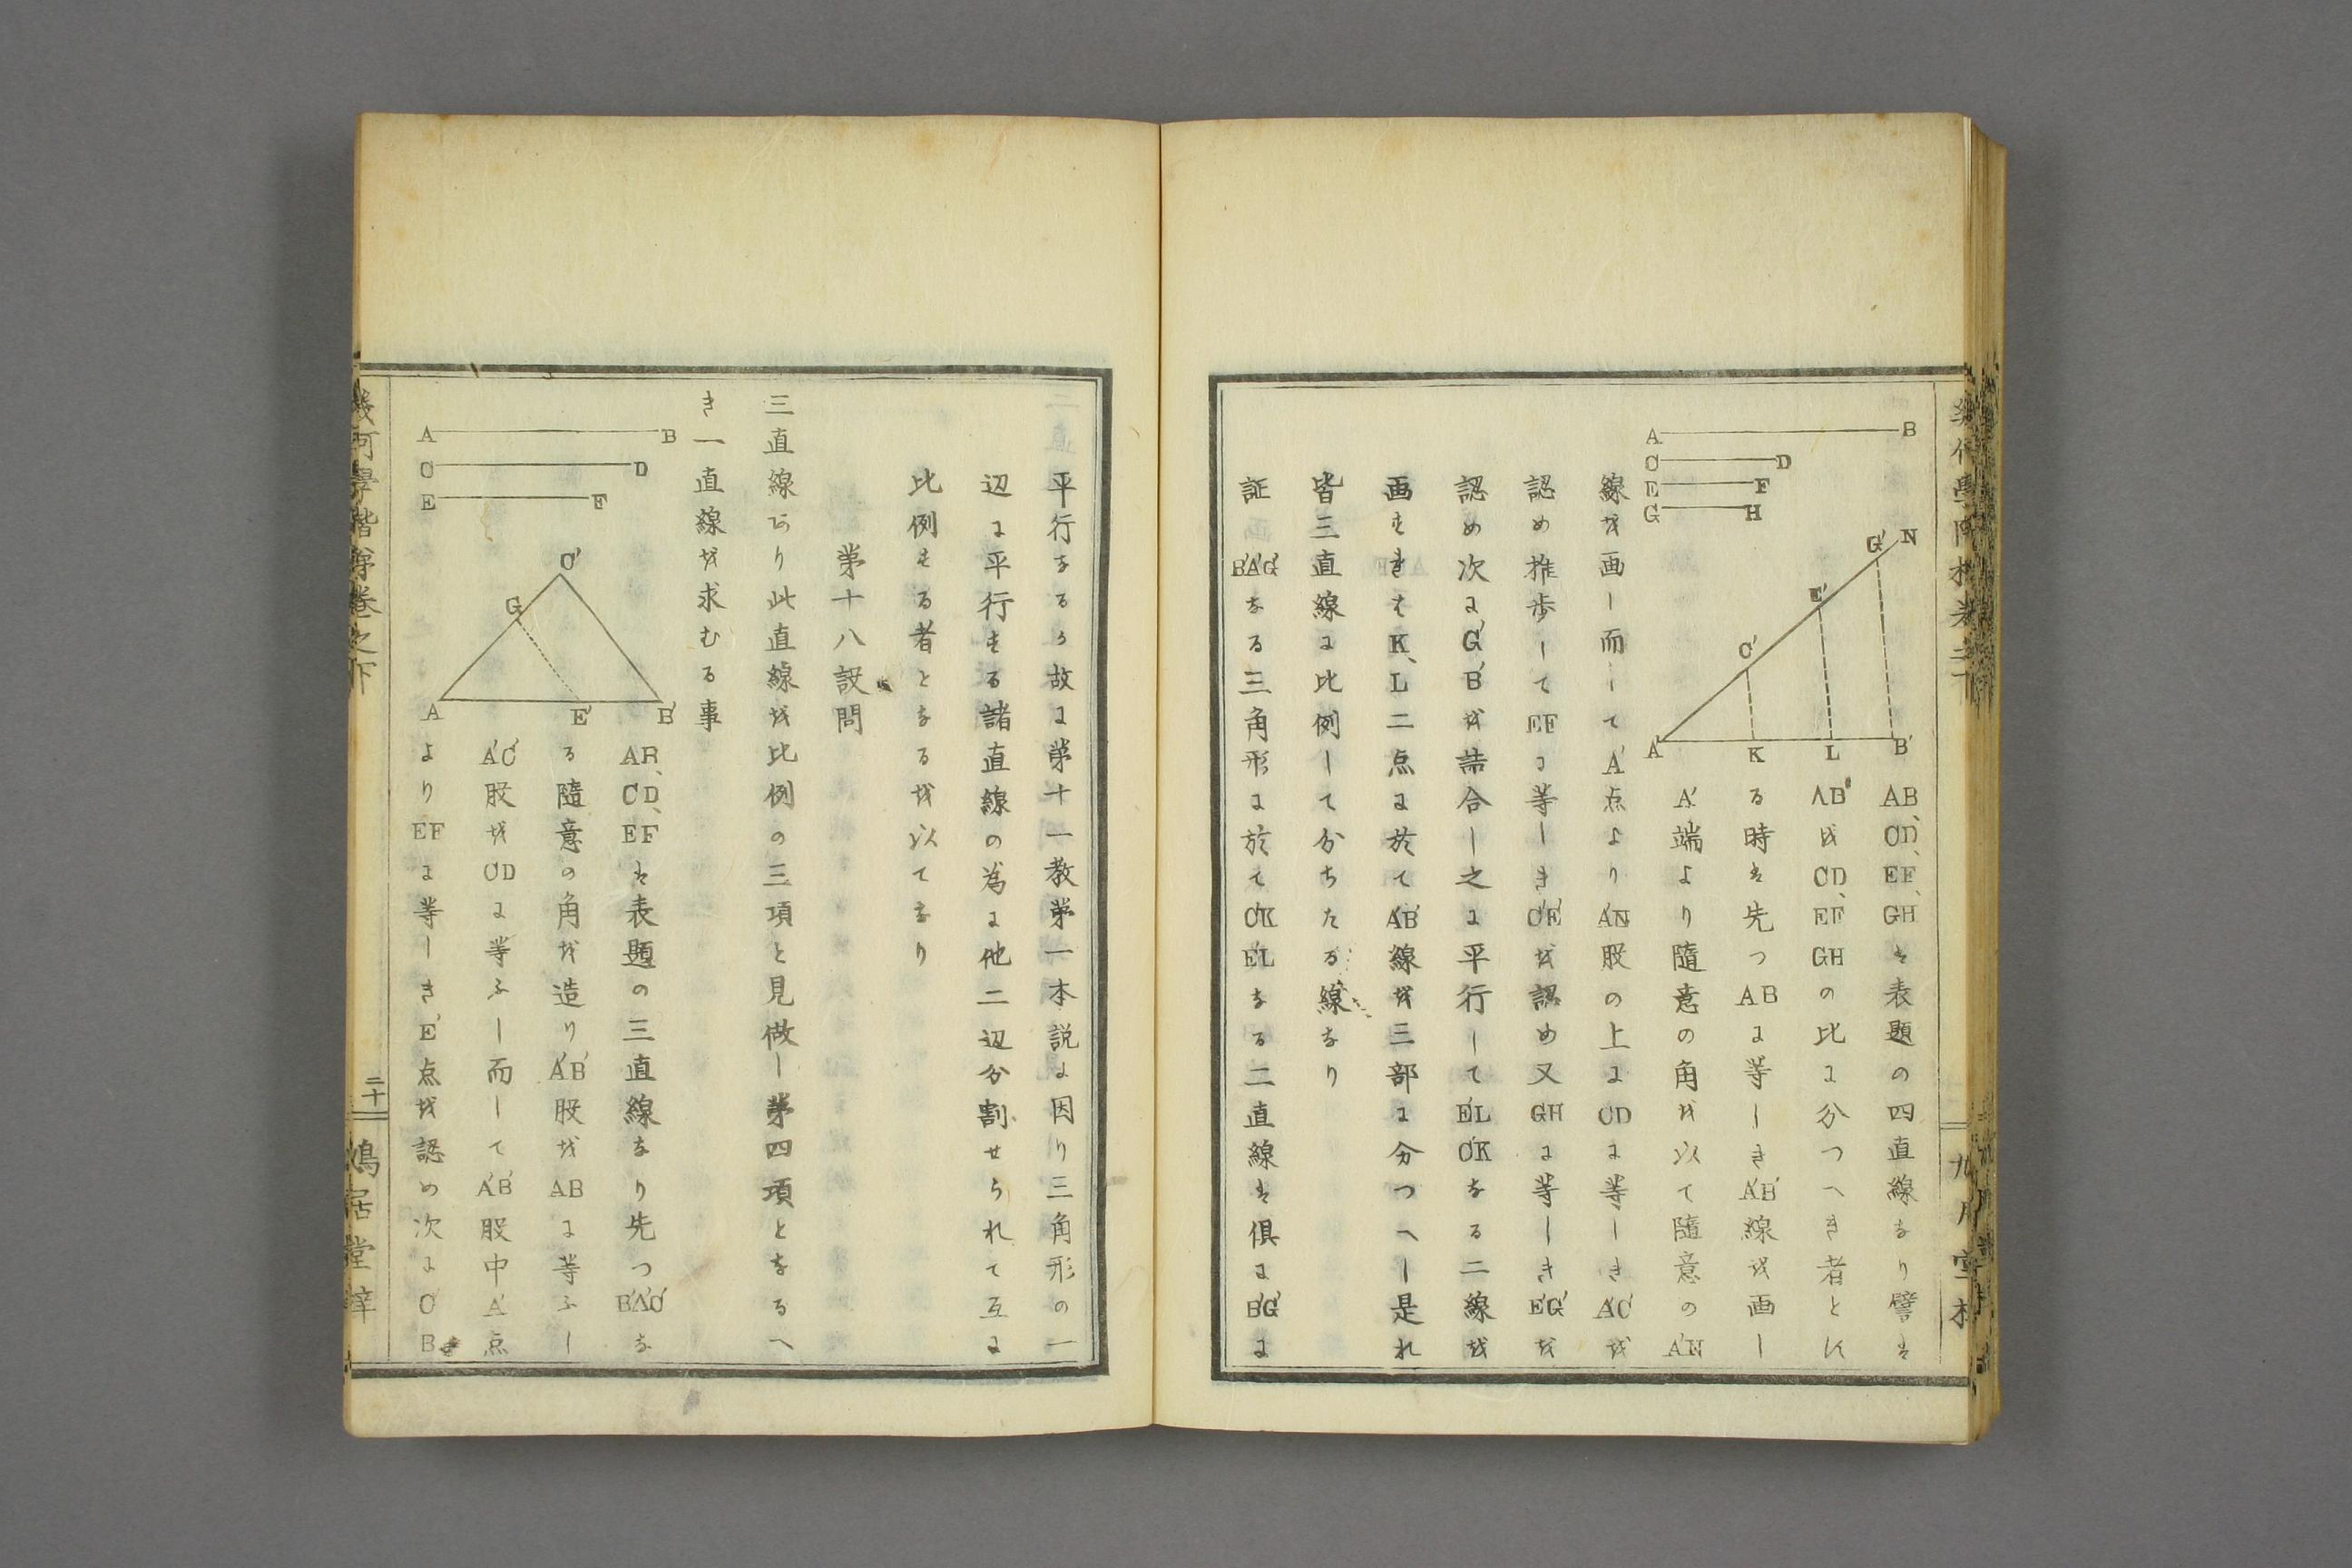 A B
C D
E F
G H
A' K L B'
C' E' G' N
AB、CD、EF、GHハ表題の四直線なり譬ハ
AB ヲCD、EF GHの比に分つへき者とせ
る時ハ先つABに等しきA'B'線を画し
A'端より隨意の角を以て隨意のA'N
線を画し而してA'点よりA'N股の上にCDに等しきA'C'を
認め推歩してEFに等しきC'E'を認め又GHに等しきE'G'を
認め次にG'B'を詰合し之に平行してE'L C'Kなる二線を
画すれはK、L二点に於てA'B'線を三部に分つへし是れ
皆三直線に比例して分ちたる線なり
証 B'A'G'なる三角形に於てC'K E'Lなる二直線ハ倶にB'G'に
平行なるゟ故に第十一教第一本説に因り三角形の一
辺に平行する諸直線の為に他二辺分割せられて互に
比例する者となるを以てなり
第十八設問
三直線あり此直線を比例の三項と見做し第四項となるへ
き一直線を求むる事
A B
C D
E F
C'
G
A E' B'
AB、CD、EFハ表題の三直線なり先つB'A'C'な
る隨意の角を造りA'B'股をABに等ふし
A'C'股をCDに等ふし而してA'B'股中A'点
よりEFに等しきE'点を認め次にC'B'
幾何學階梯卷之下
二十
鳩居堂梓